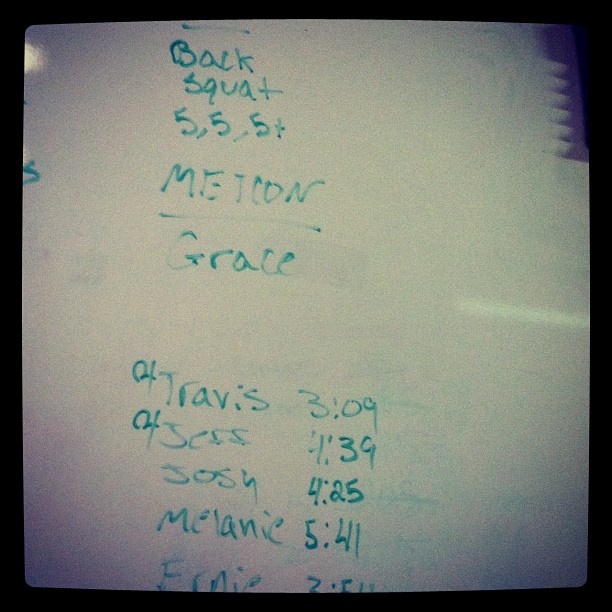 Back
Squat
5,5,5+
METCON
Grace
Travis 3:09
Jess 4:39
Josh 4:25
Melanie 5:41
Ernie